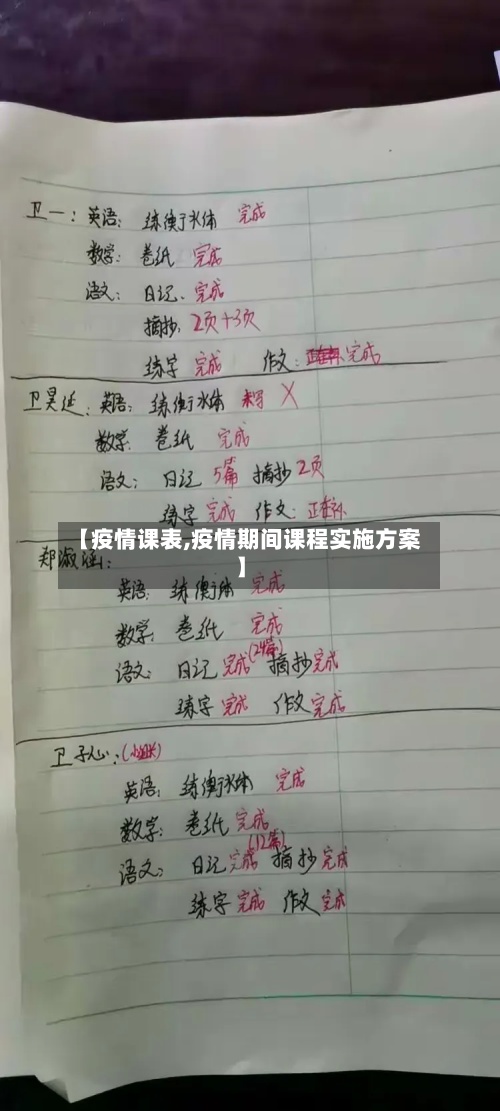 卫一：英语：练衡水体 完成
数学：卷纸 完成
语文：日记、完成
摘抄，2页+3页
练字 完成 作文： 完成
卫昊延：英语：练衡水体 X
数学 卷纸 完成
语文：日记 5篇 摘抄 2页
练字 完成 作文：
【疫情课表,疫情期间课程实施方案
】
郑淑涵：
英语：练衡体 完成
数学，卷纸 完成
语文：日记 完成(24篇) 摘抄完成
练字 完成 作文 完成
卫子心：(小组长)
英语：练衡水体 完成
数学：卷纸 完成
语文：日记 完成(12篇) 摘抄 完成
练字 完成 作文 完成